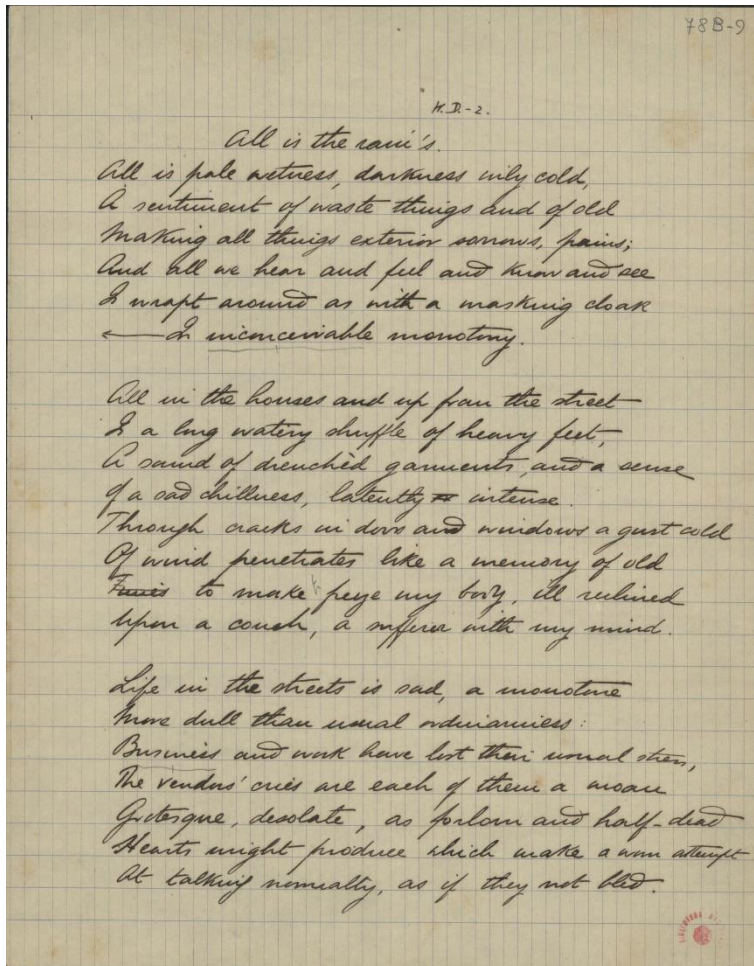 78B-9
H.D.-2.
All is the rain's.
All is pale wetness, darkness wily cold,
A sentiment of waste things and of old
Making all things exterior sorrows, pains;
And all we hear and feel and know and see
Is wrapt around as with a masking cloak
In inconceivable monotony.
All in the houses and up from the street
Is a long watery shuffle of heavy feet,
A sound of drenchèd garments, and a sense
Of a sad chillness, latently intense.
Through cracks in doors and windows a gust cold
Of wind penetrates like a memory of old
Times to make freeze my body, ill reclined
Upon a couch, a sufferer with my mind.
Life in the streets is sad, a monotone
More dull than usual ordinariness:
Business and work have lost their usual stress,
The vendors' cries are each of them a moan
Grotesque, desolate, as forlorn and half-dead
Hearts might produce which make a worn attempt
At talking normally, as if they not bled.